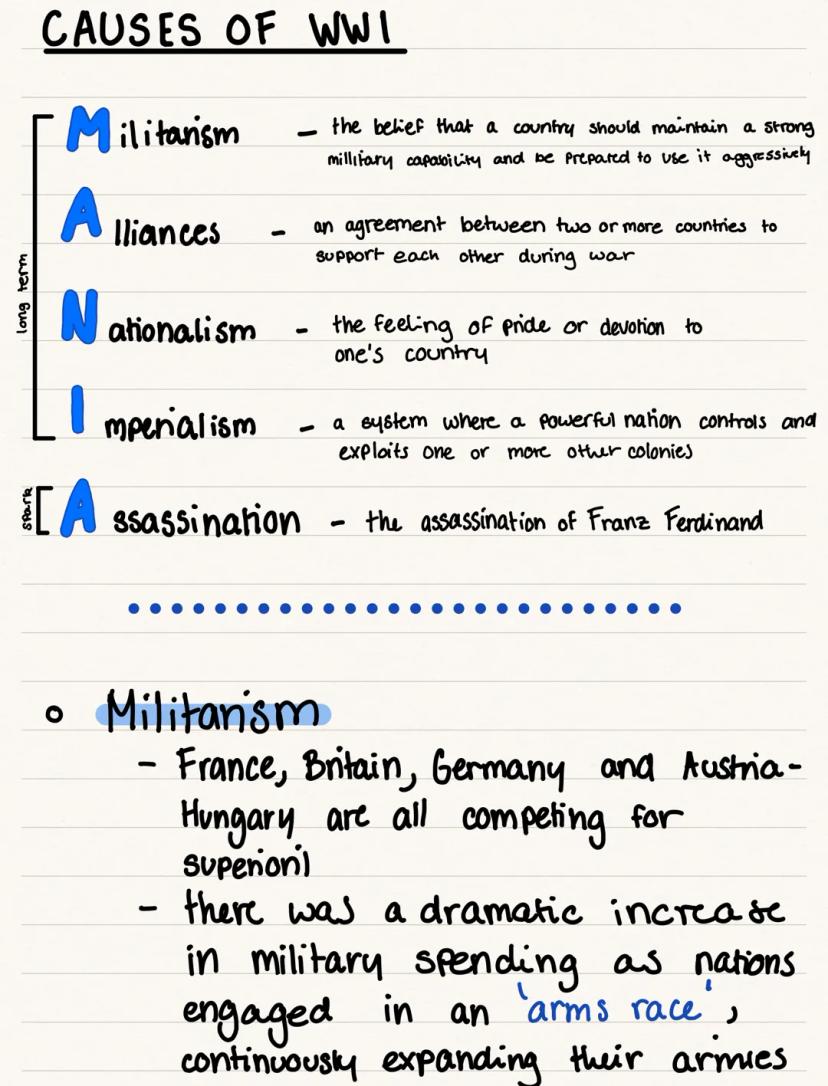 CAUSES OF WW1
Militarism – the belief that a country should maintain a strong
millitary capability and be prepared to use it aggressively
Alliances - an agreement between two or more countries to
support each other during war
long term
Nationalism - the feeling of pride or devotion to
one's country
Imperialism - a system where a powerful nation controls and
exploits one or more other colonies
spark
Assassination - the assassination of Franz Ferdinand
Militarism
- France, Britain, Germany and Austria-
Hungary are all competing for
- there was a dramatic increase
in military spending as nations
engaged in an 'arms race',
continuously expanding their armies